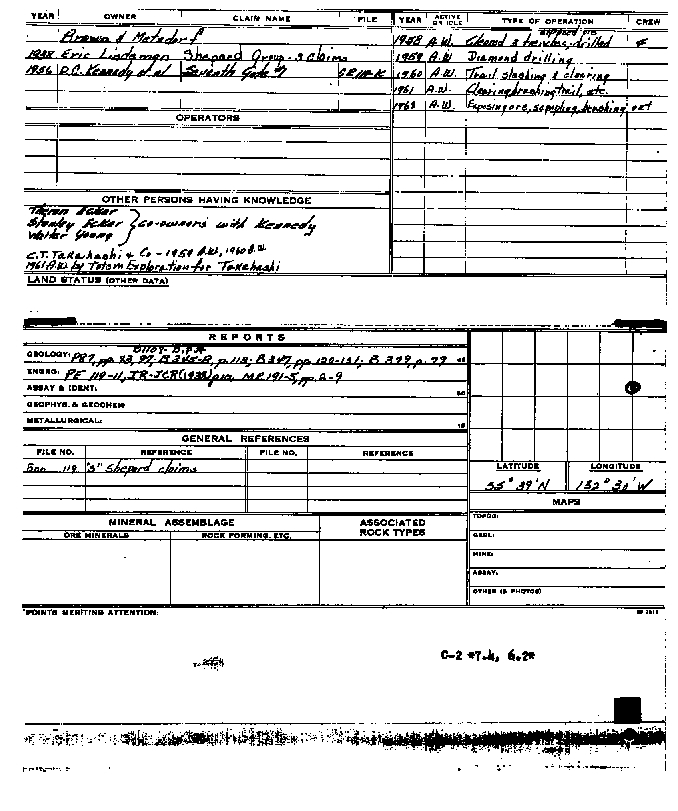 YEAR OWNER CLAIM NAME FILE
Brown & Metzdorf
1938 Eric Lindeman Shepard Group - 3 Claims
1956 D.C. Kennedy et al Seventh Gate #7
OPERATORS
OTHER PERSONS HAVING KNOWLEDGE
Theron Ecker
Stanley Ecker } Co-owners with Kennedy
Walter Young
C.T. Takahashi & Co - 1959 A.W., 1960 A.W.
1961 A.W. by Totem Exploration for Takahashi
LAND STATUS (OTHER DATA)
YEAR ACTIVE OR IDLE TYPE OF OPERATION CREW
1958 A.W. trenches, drilled
1959 A.W. Diamond drilling
1960 A.W. Trail slashing & clearing
1961 A.W. Clearing, brushing trail, etc.
1963 A.W. Exposing ore, sampling, brushing out
REPORTS
GEOLOGY: P87, pp. 93, 97, B 345-B, p. 113, B 347, pp. 120-131, B 399, p. 79
ENGRG: PE 119-11, IR-JCR(1938) MR 191-5, pp. 2-9
ASSAY & IDENT:
GEOPHYS. & GEOCHEM:
METALLURGICAL:
GENERAL REFERENCES
FILE NO. REFERENCE FILE NO. REFERENCE
119 "S" Shepard claims
LATITUDE LONGITUDE
55° 39' N 132° 30' W
MAPS
TOPOG:
GEOL:
MINE:
ASSAY:
OTHER (& PHOTOS)
MINERAL ASSEMBLAGE ASSOCIATED ROCK TYPES
ORE MINERALS ROCK FORMING, ETC.
POINTS MERITING ATTENTION:
C-2 *7.4, 6.2*